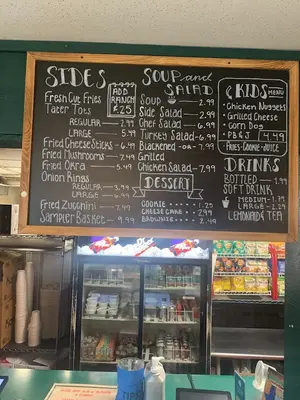 SIDES
Fresh Cut Fries
Tater Tots
REGULAR 2.99
LARGE 5.49
ADD
RANCH
.25
Fried Cheese Sticks 6.49
Fried Mushrooms 7.49
Fried Okra 5.49
Onion Rings
REGULAR 3.99
LARGE 6.99
Fried Zucchini 7.49
Sampler Basket 9.99
SOUP and
SALAD
Soup 2.99
Side Salad 2.99
Chef Salad 6.99
Turkey Salad 6.99
Blackened -or- 7.99
Grilled
Chicken Salad 7.99
DESSERT
COOKIE 1.25
CHEESECAKE 2.99
BROWNIE 2.49
KIDS MENU
Chicken Nuggets
Grilled Cheese
Corn Dog
PB & J
4.49
FRIES·COOKIE·JUICE
DRINKS
BOTTLED 1.99
SOFT DRINK
MEDIUM 1.79
LARGE 2.29
LEMONADE & TEA
TIPS